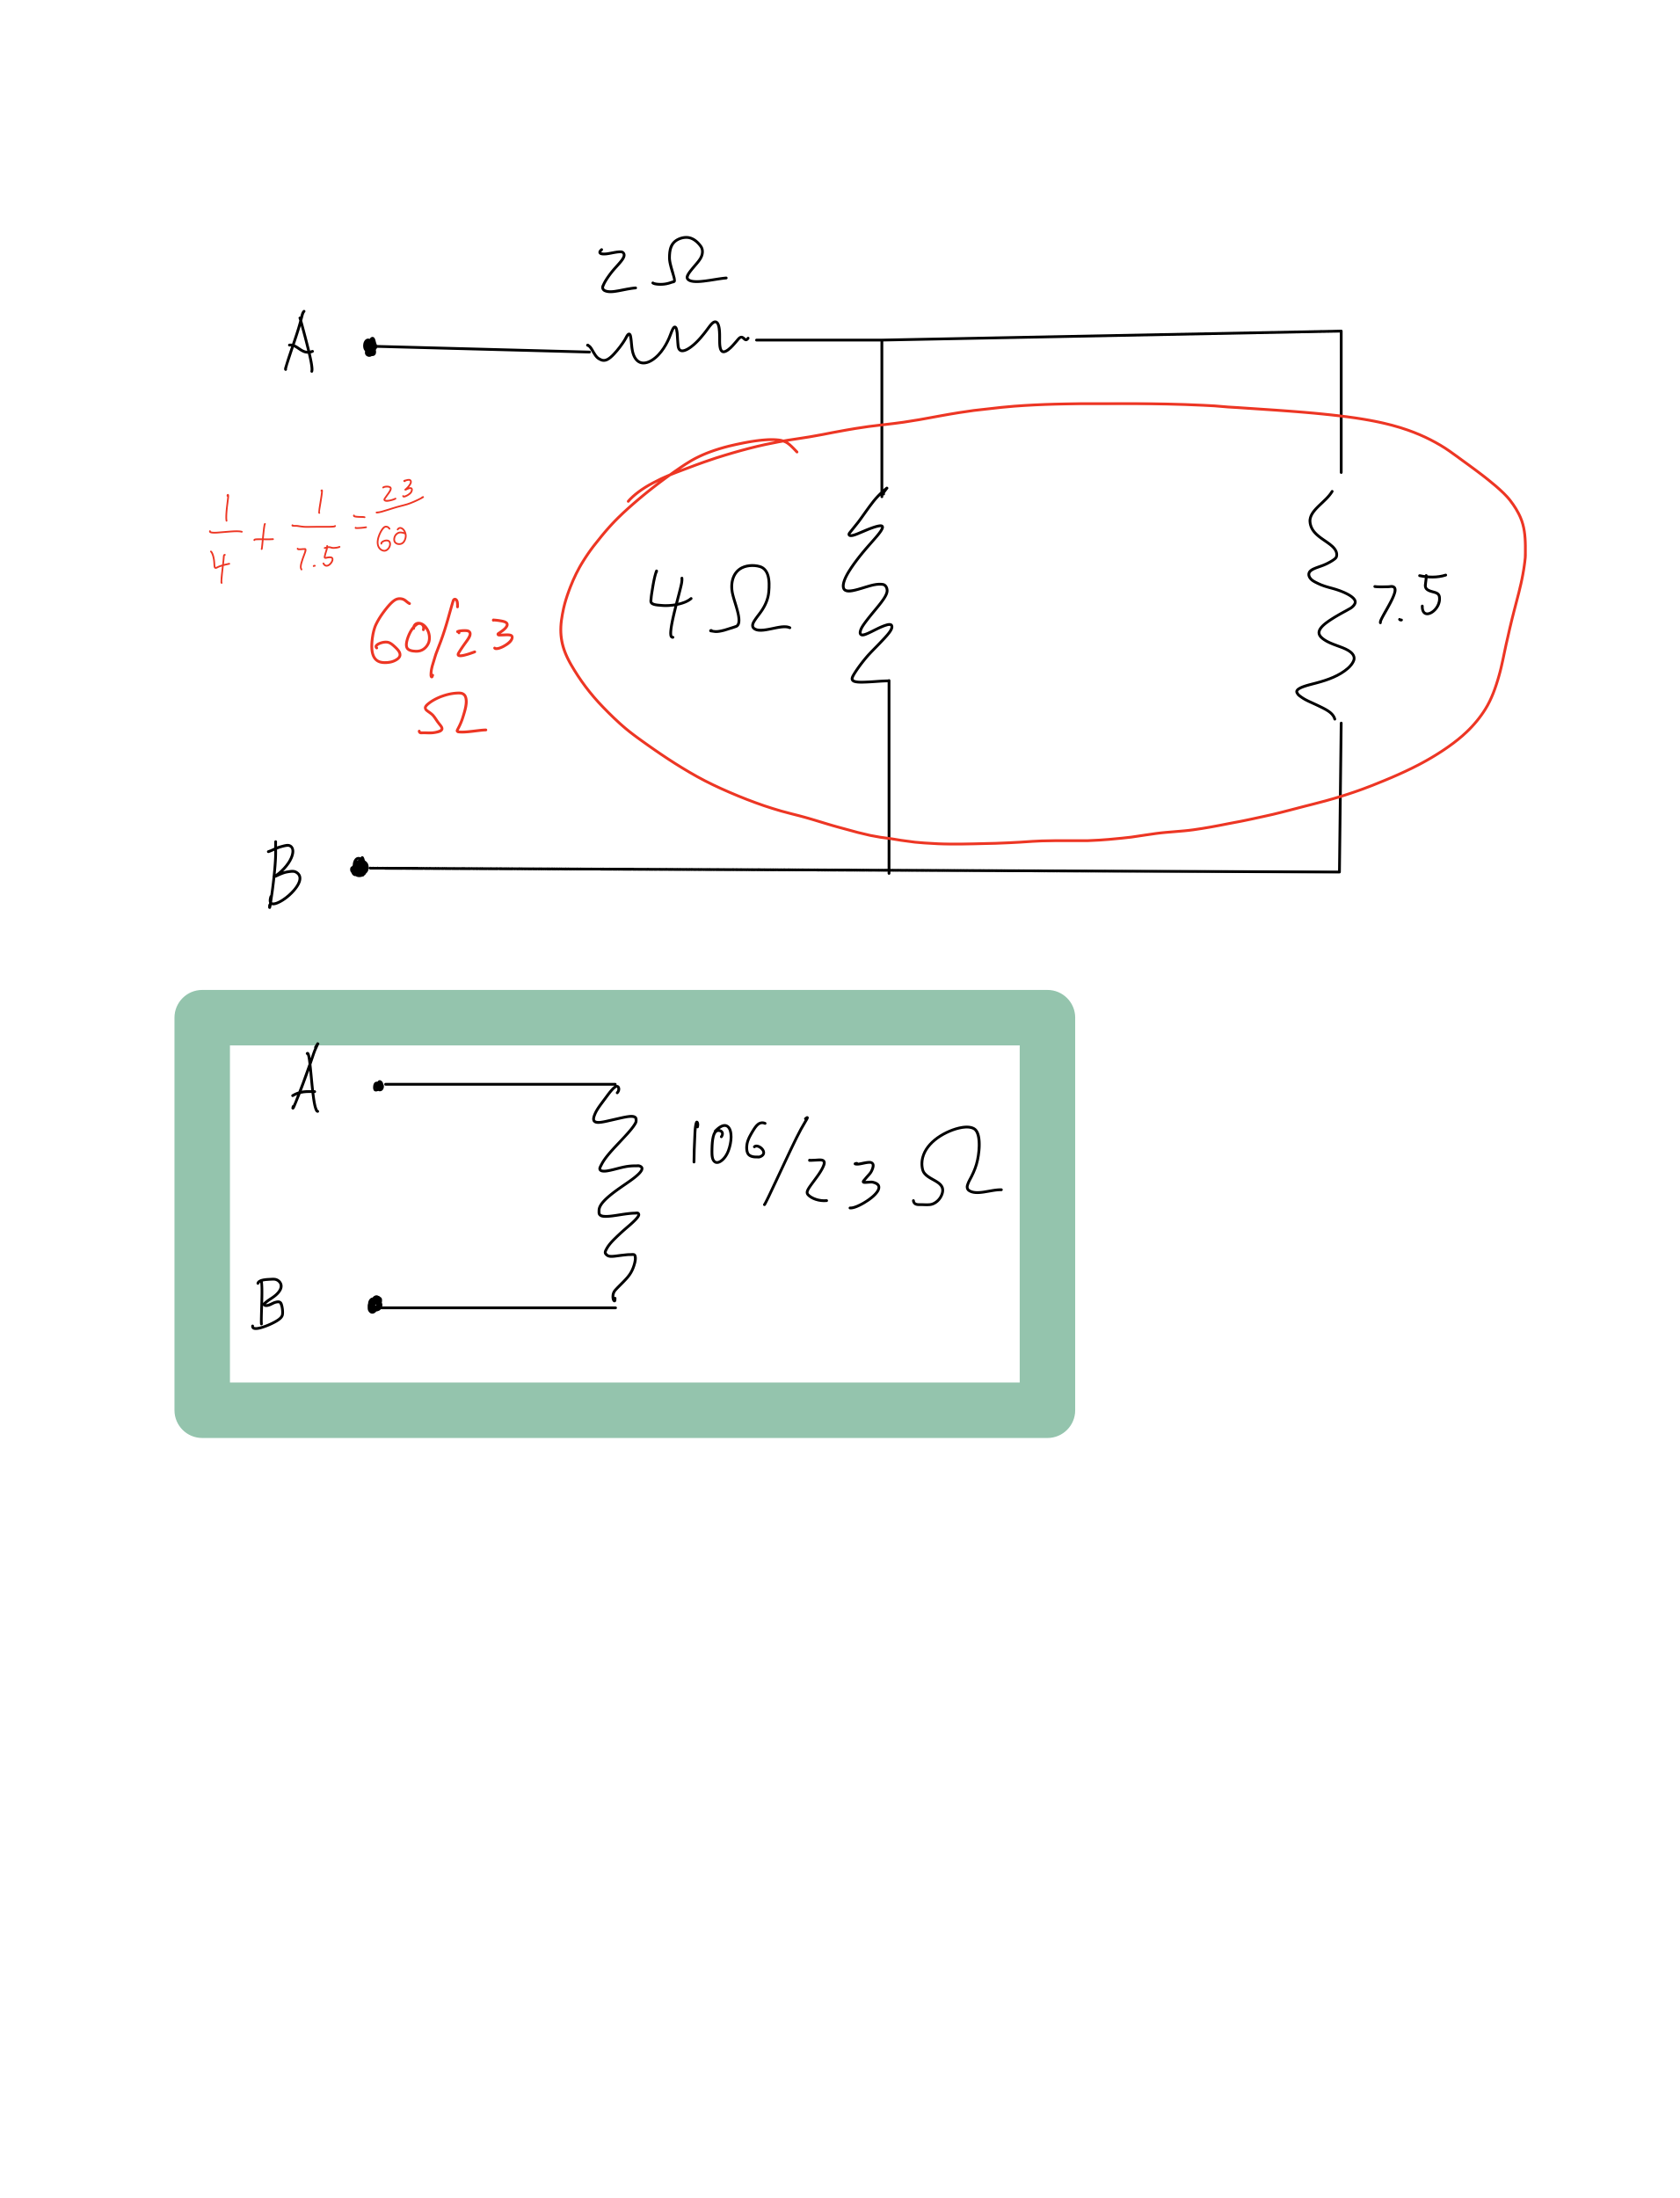 2 Ω
A
1/4 + 1/7.5 = 23/60
60/23
Ω
4 Ω
7.5
B
A
106/23 Ω
B